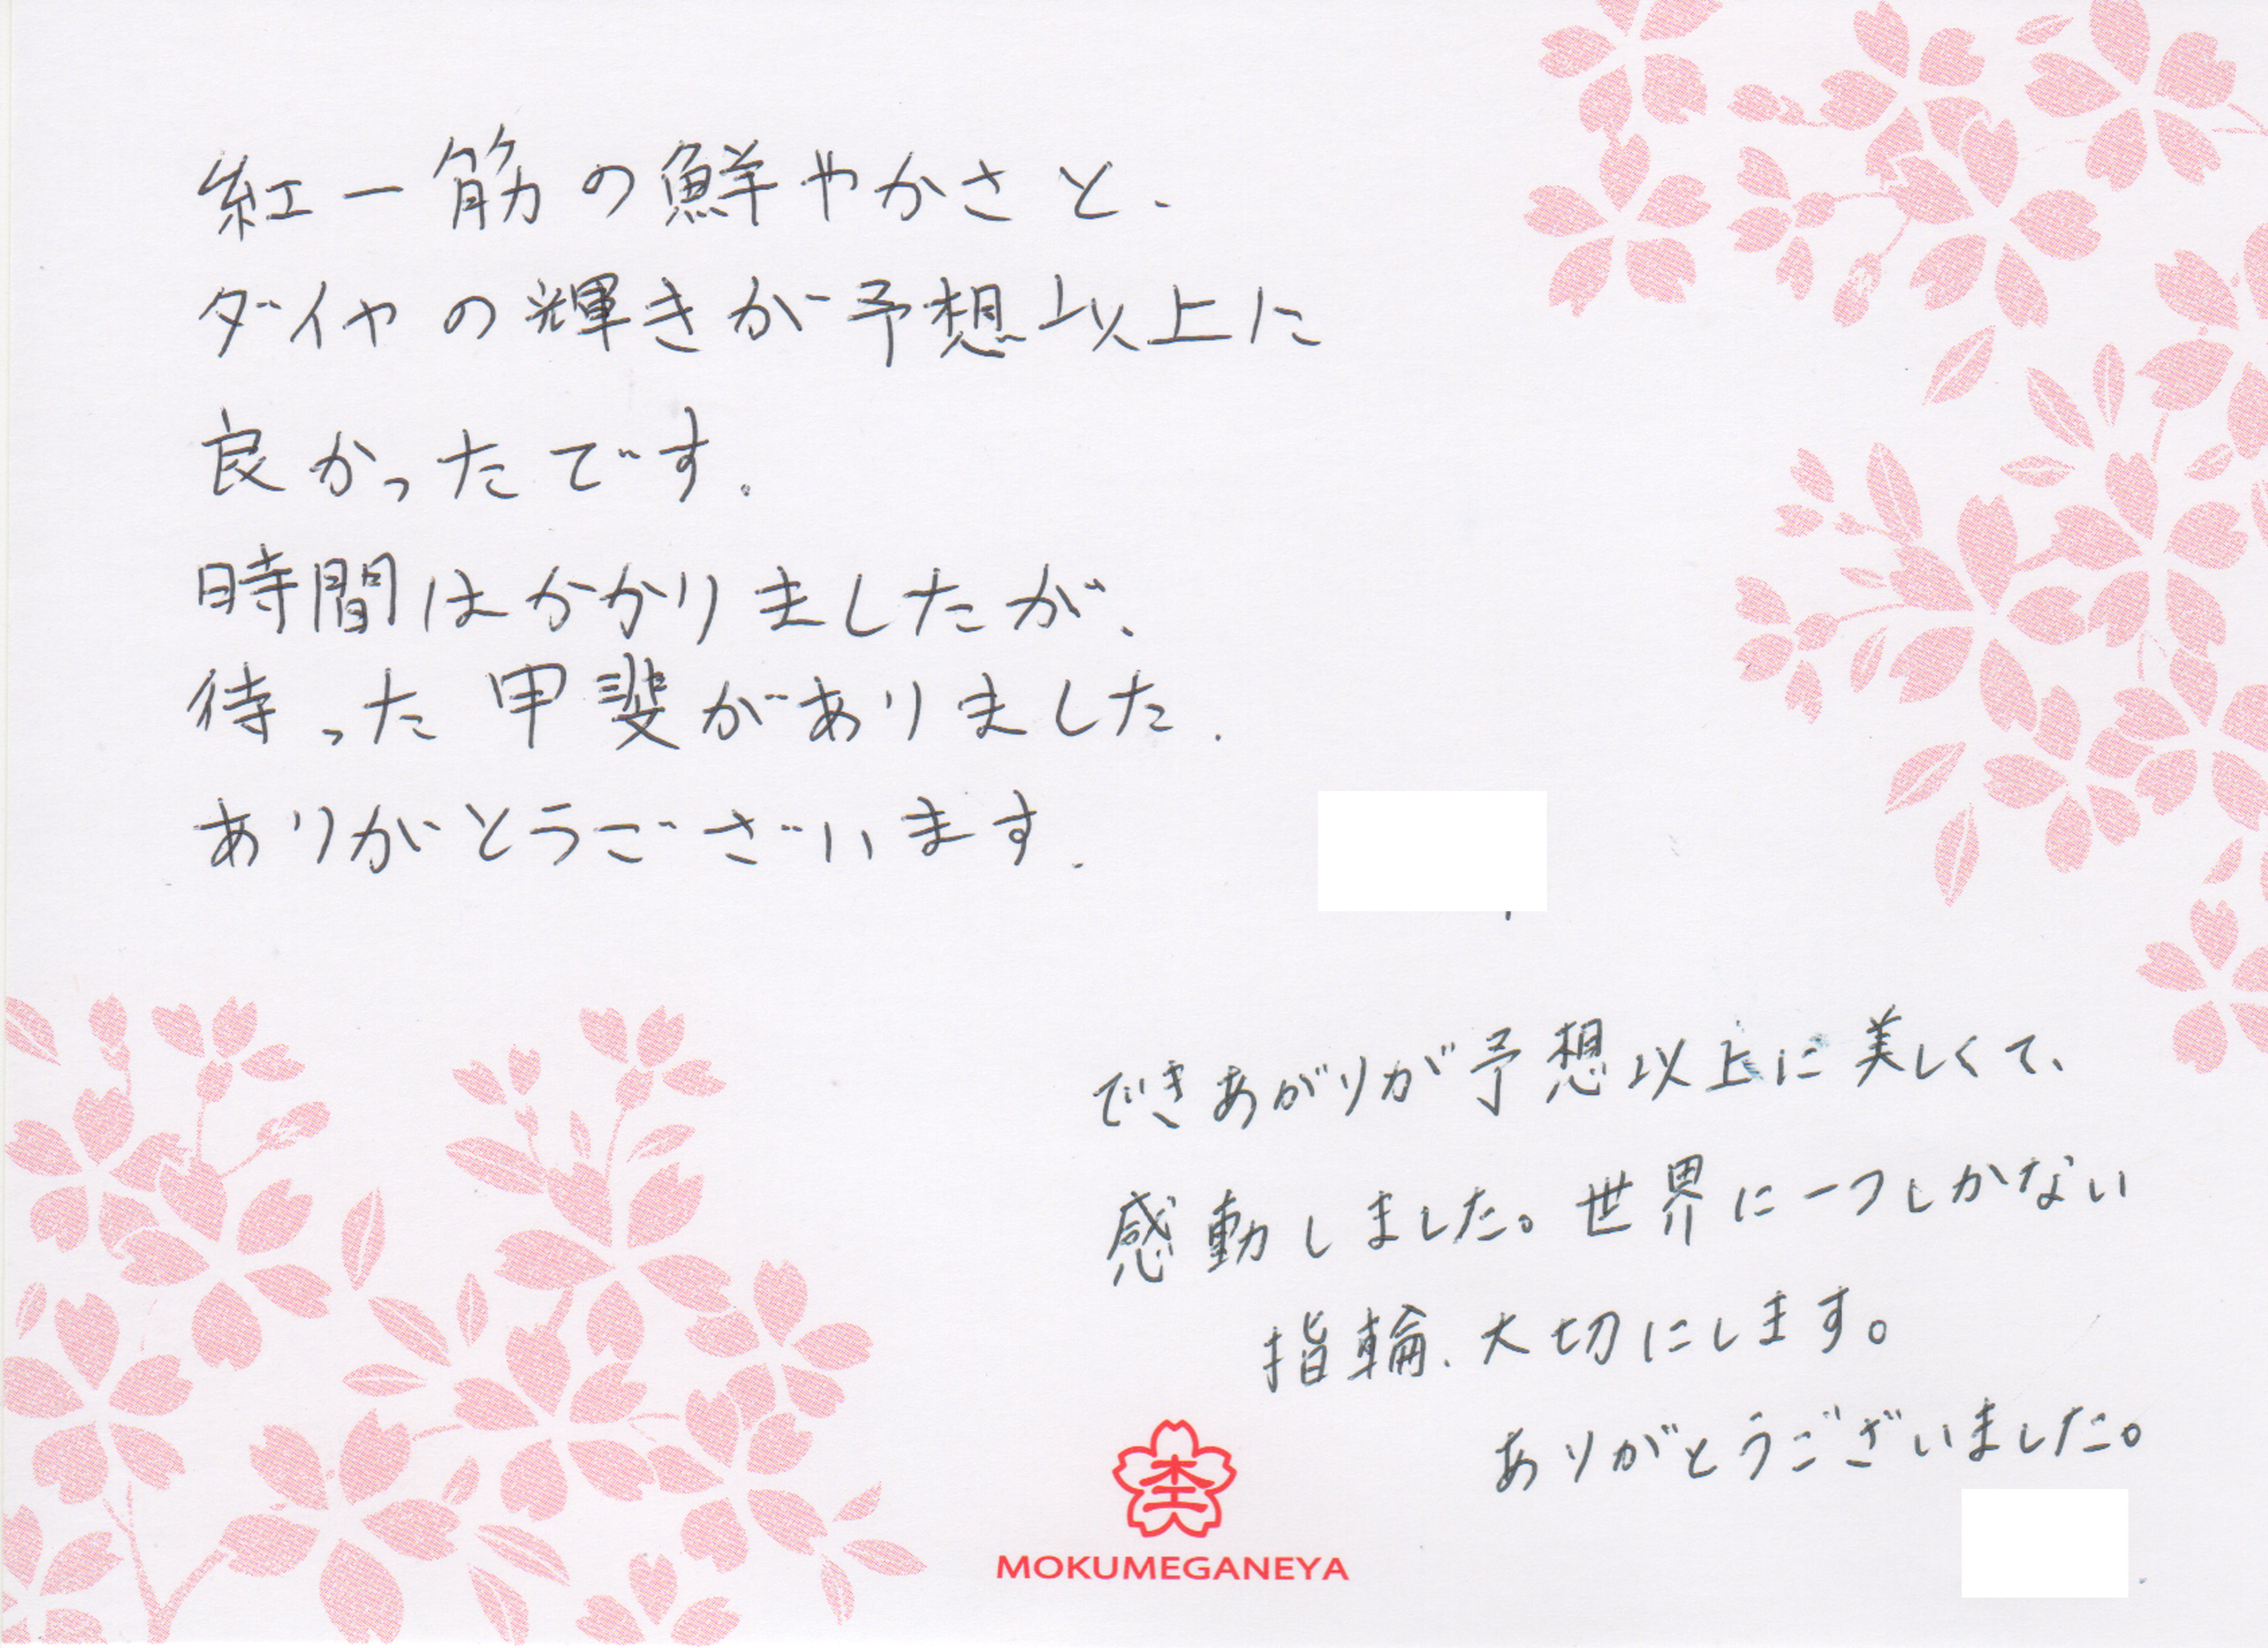 紅一筋の鮮やかさと、
ダイヤの輝きが予想以上に
良かったです。
時間はかかりましたが、
待った甲斐がありました.
ありがとうございます.
できあがりが予想以上に美しくて、
感動しました。世界に一つしかない
指輪、大切にします。
ありがとうございました。
杢
MOKUMEGANEYA